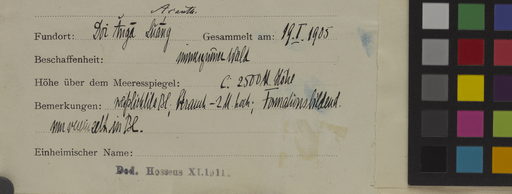 Acanth.
Fundort: Doi Anga Luang Gesammelt am: 19.I.1905
Beschaffenheit: immergrüner Wald
Höhe über dem Meeresspiegel: c. 2500 M. Höhe
Bemerkungen: Strauch - 2 M. hoch; Formationsbildend.
nur in Bl.
Einheimischer Name:
Ded. Hosseus XI.1911.